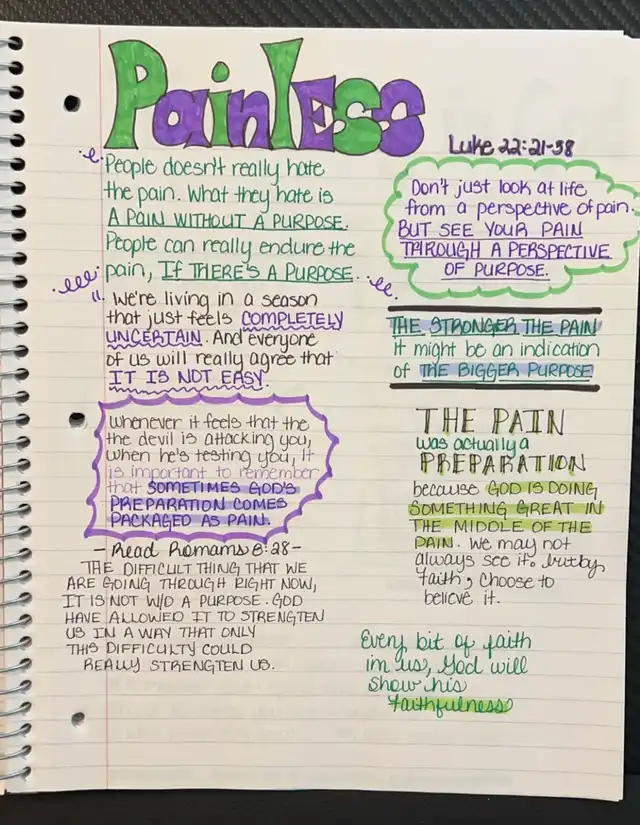 Painless
Luke 22:21-38
People doesn't really hate
the pain. What they hate is
A PAIN WITHOUT A PURPOSE.
People can really endure the
pain, IF THERE'S A PURPOSE.
We're living in a season
that just feels COMPLETELY
UNCERTAIN. And everyone
of us will really agree that
IT IS NOT EASY.
whenever it feels that the
the devil is attacking you,
when he's testing you, it
is important to remember
that SOMETIMES GOD'S
PREPARATION COMES
PACKAGED AS PAIN.
- Read Romans 8:28 -
THE DIFFICULT THING THAT WE
ARE GOING THROUGH RIGHT NOW,
IT IS NOT W/O A PURPOSE. GOD
HAVE ALLOWED IT TO STRENGTEN
US IN A WAY THAT ONLY
THIS DIFFICULTY COULD
REALLY STRENGTEN US.
Don't just look at life
from a perspective of pain.
BUT SEE YOUR PAIN
THROUGH A PERSPECTIVE
OF PURPOSE.
THE STRONGER THE PAIN
it might be an indication
of THE BIGGER PURPOSE
THE PAIN
was actually a
PREPARATION
because GOD IS DOING
SOMETHING GREAT IN
THE MIDDLE OF THE
PAIN. We may not
always see it, but by
faith, choose to
believe it.
Every bit of faith
in us, God will
show his
faithfulness